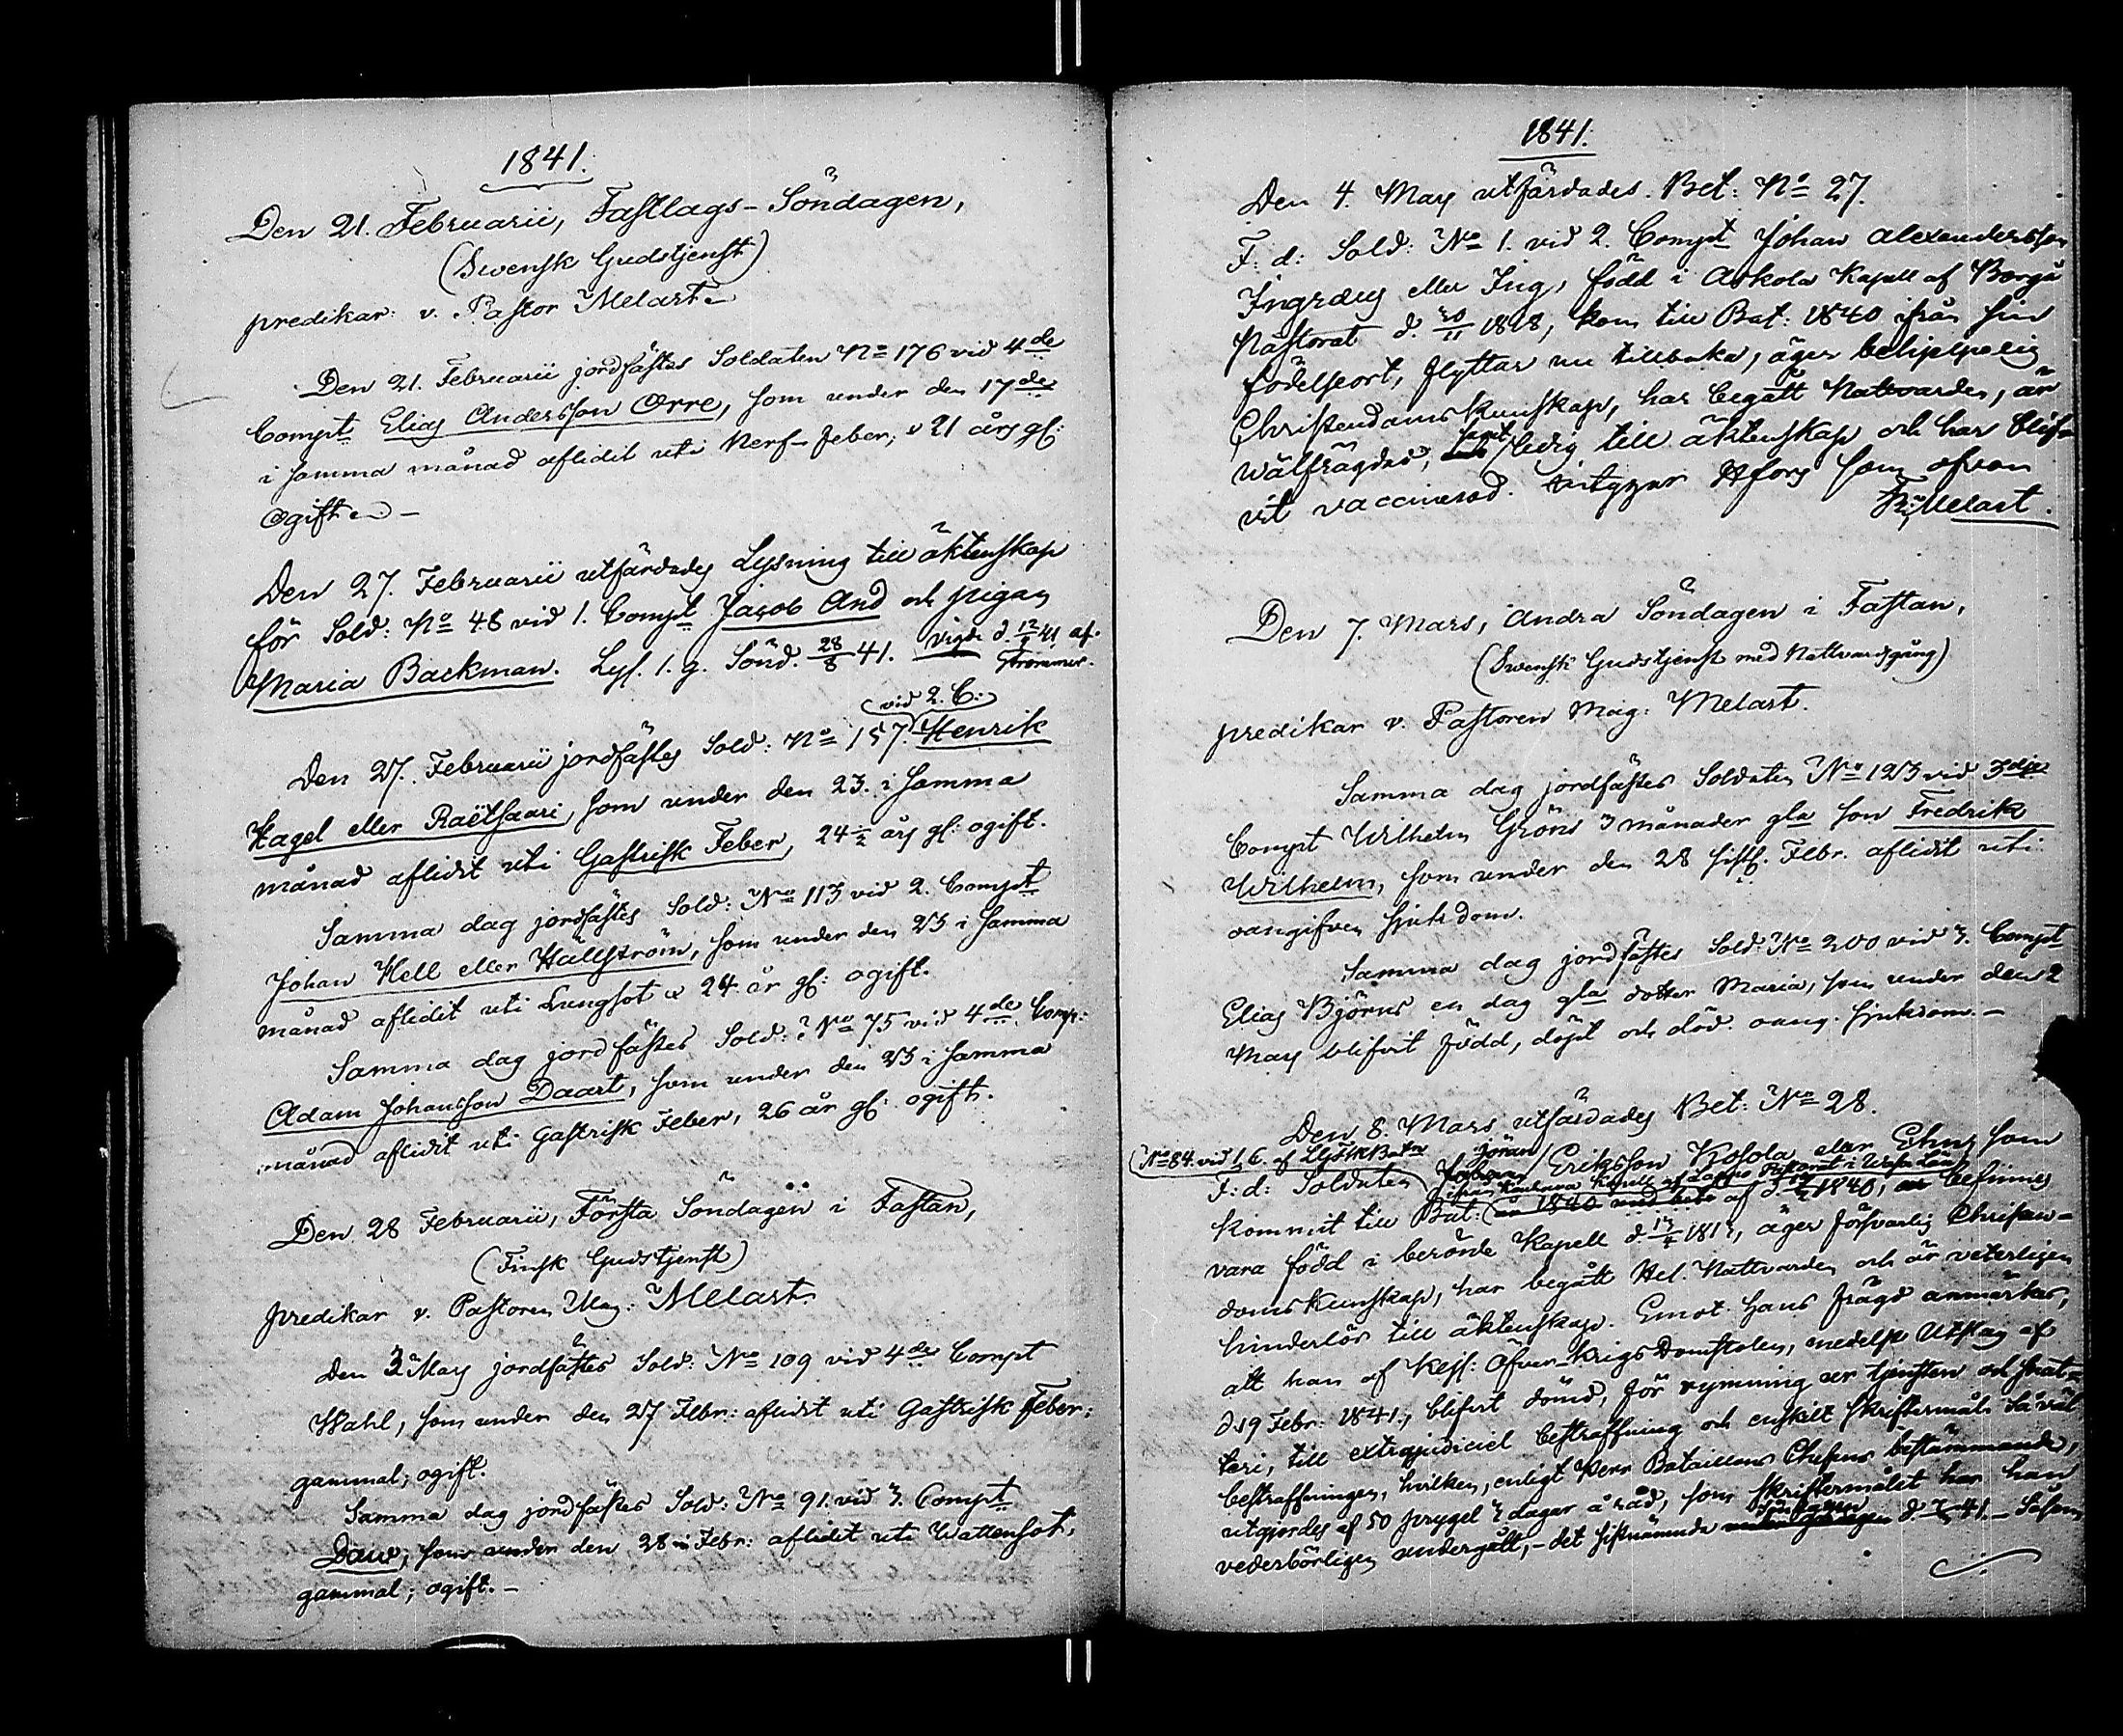 1841.
Den 21. Februarii, Fastlags-Söndagen,
(Swensk Gudstjenst)
predikar: v. Pastor Melart.
Den 21. Februarii jordfästes Soldaten No 176 vid 4de
Compt. Elias Andersson Orre, som under den 17de
i samma månad aflidit uti Nerf-feber, 21 års gl:
Ogift. –
Den 27. Februarii utfärdades Lysning till äktenskap
för Sold: No 48 vid 1. Compt Jacob And och pigan
Maria Backman. Lys. 1. g. Sönd. 28/8 41. vigde d. 12/4 41 af
Strömmer.
vid 2. C:
Den 27. Februarii jordfästes Sold: No 157. Henrik
Hagel eller Raëtsaari, som under den 23. i samma
månad aflidit uti Gastrisk Feber, 24 1/2 års gl: ogift.
Samma dag jordfästes Sold: No 113 vid 2. Compt
Johan Hell eller Hällström, som under den 23 i samma
månad aflidit uti Lungsot 24 år gl: ogift.
Samma dag jordfästes Sold: No 75 vid 4de Comp:
Adam Johansson Daart, som under den 23 i samma
månad aflidit uti Gastrisk Feber, 26 år gl: ogift.
Den 28 Februarii, Första Söndagen i Fastan,
(Finsk Gudstjenst)
predikar v. Pastoren Mag: Melart.
Den 3 Mars jordfästes Sold: No 109 vid 4de Compt
Wahl, som under den 27 Febr: aflidit uti Gastrisk Feber;
gammal; ogift.
Samma dag jordfästes Sold: No 91. vid 3. Compt
Daw, som under den 28 Febr: aflidit uti Wattensot,
gammal; ogift. –
1841.
Den 4. Mars utfärdades Bet: No 27.
F: d: Sold: No 1. vid 2. Compt Johan Alexandersson
Ingrdes eller Ing, född i Askola Kapell af Borgå
Pastorat d. 20/11 1818, kom till Bat: 1840 ifrån sin
födelseort, flyttar nu tillbaka, äger behjelpelig
Christendoms kunskap, har begått Nattvarden, är
välfrägdad, samt ledig till äktenskap och har blif-
vit vaccinerad. intygar Hfors som ofvan
Fr: Melart.
Den 7. Mars, Andra Söndagen i Fastan,
(Swensk Gudstjenst med Nattvardsgång)
predikar v. Pastoren Mag: Melart.
Samma dag jordfästes Soldaten No 123 vid 3dje
Compt Wilhelm Gröns 3 månader gla son Fredrik
Wilhelm, som under den 28 sistl. Febr. aflidit uti
oangifven sjukdom.
Samma dag jordfästes Sold: No 200 vid 3. Compt
Elias Björns en dag gla dotter Maria, som under den 2
Mars blifvit född, döpt och död. oang. sjukdom. –
Den 8. Mars utfärdades Bet: No 28.
(No 84. vid 1 C. af
Göran
F: d: Soldaten Eriksson Kosola eller som
ifrån Kapell af Lappo Pastorat i Wasa Län
kommit till Bat: år 1840 med af d. 1840, befinnes
vara född i berörde Kapell d 13/4 1813, äger försvarlig Christen-
doms kunskap, har begått Hel. Nattvarden och är veterligen
hinderlös till äktenskap. Emot hans frägd anmärkes,
att han af Kejs: Öfver-Krigs Domstolen, medelst Utslag af
d. 19 Febr: 1841, blifvit dömd, för rymning ur tjensten och
teri, till extrajudiciel bestraffning och enskilt skriftermål. Såväl
bestraffningen, hvilken, enligt Herr Bataillons Chefens bestämmande,
utgjordes af 50 prygel 3 dagar å rad, som skriftermålet har han
vederbörligen undergått, – det sistnämnda d. 41. –